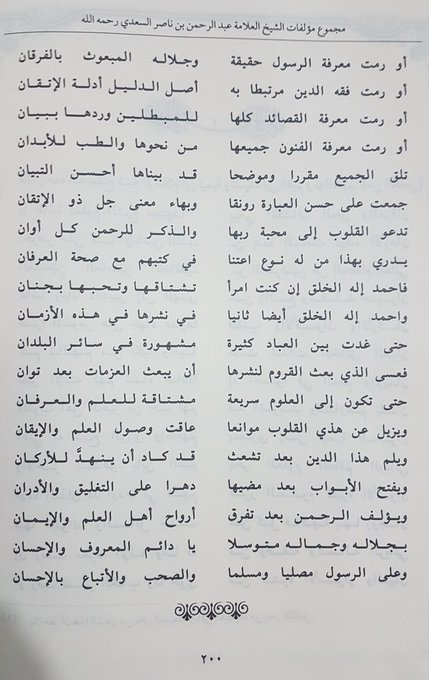 مجموع مؤلفات الشيخ العلامة عبد الرحمن بن ناصر السعدي رحمه الله
أو رمت معرفة الرسول حقيقة وجلاله المبعوث بالفرقان
أو رمت فقه الدين مرتبطا به أصل الدليل أدلة الإتقان
أو رمت معرفة القصائد كلها للمبطلين وردها ببيان
أو رمت معرفة الفنون جميعها من نحوها والطب للأبدان
تلق الجميع مقررا وموضحا قد بيناها أحسن التبيان
جمعت على حسن العبارة رونقا وبهاء معنى جل ذو الإتقان
تدعو القلوب إلى محبة ربها والذكر للرحمن كل أوان
يدري بهذا من له نوع اعتنا في كتبهم مع صحة العرفان
فاحمد إله الخلق إن كنت امرأ تشتاقها وتحبها بجنان
واحمد إله الخلق أيضا ثانيا في نشرها في هذه الأزمان
حتى غدت بين العباد كثيرة مشهورة في سائر البلدان
فعسى الذي بعث القروم لنشرها أن يبعث العزمات بعد توان
حتى تكون إلى العلوم سريعة مشتاقة للعلم والعرفان
ويزيل عن هذي القلوب موانعا عاقت وصول العلم والإيقان
ويلم هذا الدين بعد تشعث قد كاد أن ينهدَّ للأركان
ويفتح الأبواب بعد مضيها دهرا على التغليق والأدران
ويؤلف الرحمن بعد تفرق أرواح أهل العلم والإيمان
بجلاله وجماله متوسلا يا دائم المعروف والإحسان
وعلى الرسول مصليا ومسلما والصحب والأتباع بالإحسان
٢٠٠